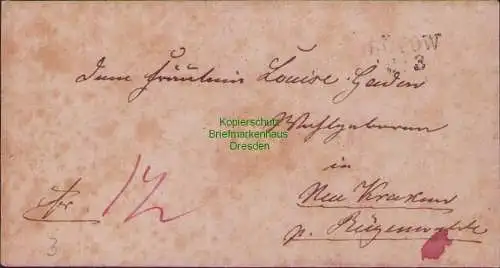 BÜTOW
3
Dem Fräulein Louise Heiden
Kopierschutz
Briefmarkenhaus
Dresden
Wohlgeboren
in
Neu Krakow
fr
p. Rügenwalde
3